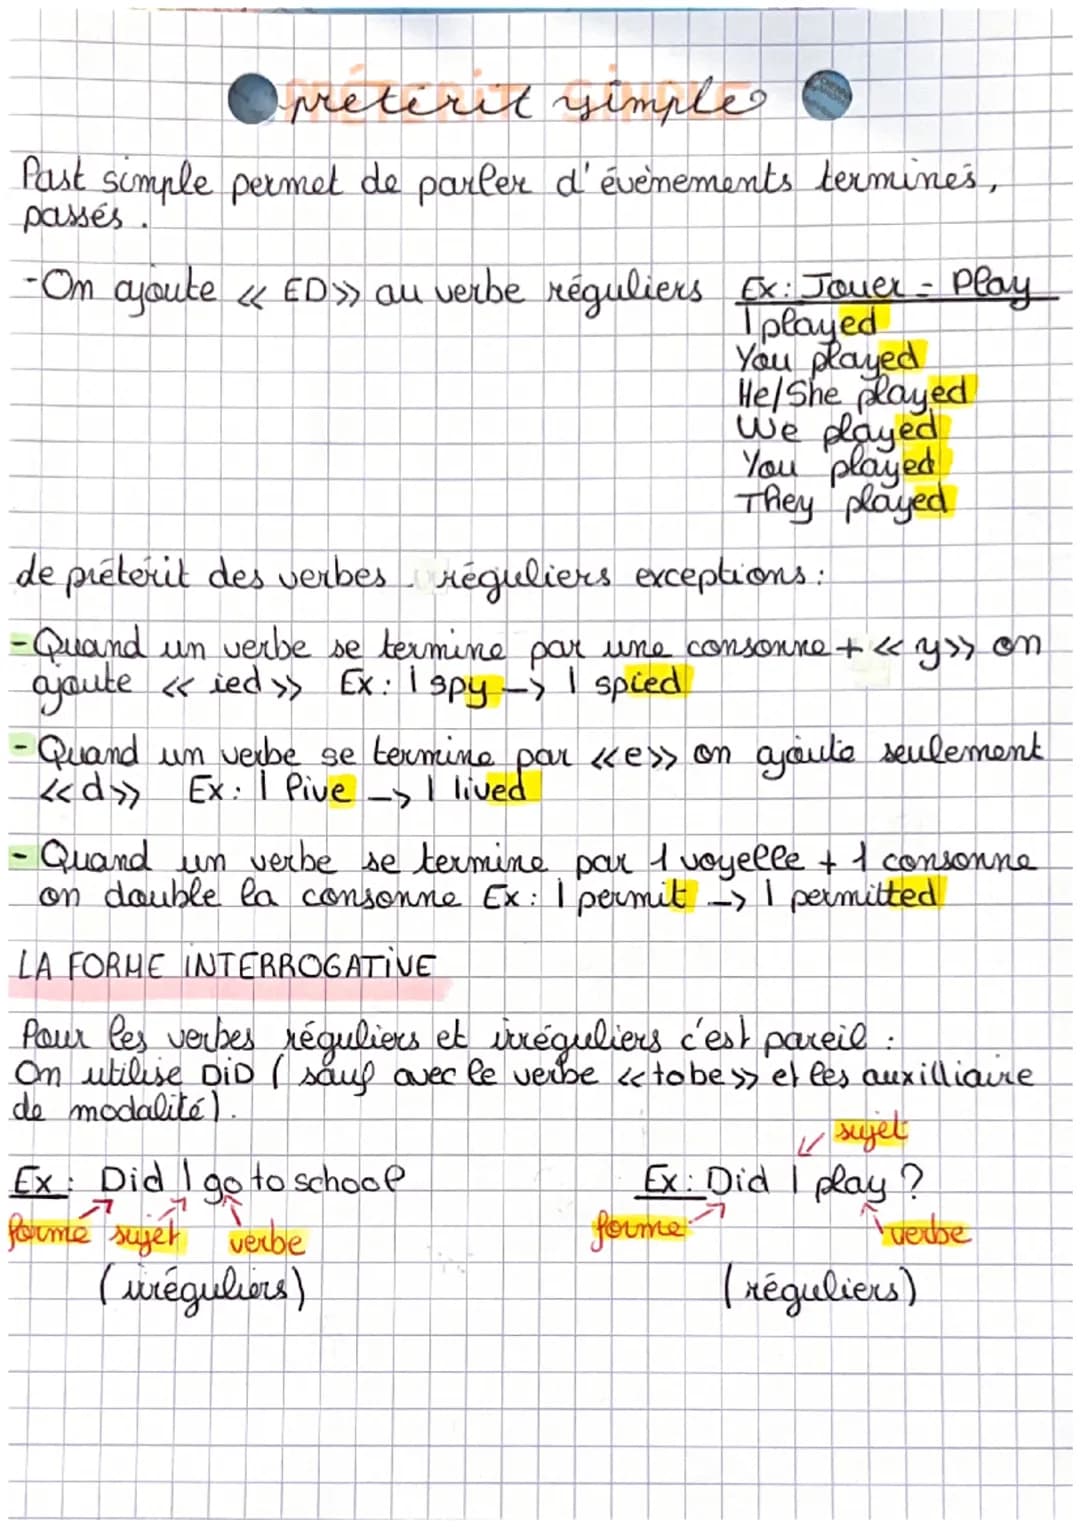 prétérit simple
Past simple permet de parler d'évènements terminés,
passés.
-On ajoute << ED>> au verbe réguliers Ex: Jouer = Play
I played
You played
He/She played
We played
You played
They played
de prétérit des verbes réguliers exceptions :
-Quand un verbe se termine par une consonne + << y>> on
ajoute << ied >> Ex: I spy -> I spied
-Quand un verbe se termine par <<e>> on ajoute seulement
<<d>> Ex: I live -> I lived
-Quand un verbe se termine par 1 voyelle + 1 consonne
on double la consonne Ex: I permit -> I permitted
LA FORME INTERROGATIVE
Pour les verbes réguliers et irréguliers c'est pareil :
On utilise DID ( sauf avec le verbe << to be >> et les auxilliaire
de modalité).
sujet
Ex: Did I go to school
Ex: Did I play ?
forme sujet verbe
forme verbe
( irréguliers)
( réguliers)